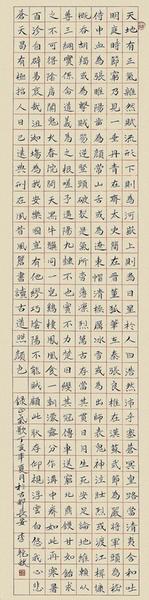 天地有正氣雜然賦流形下則為河嶽上則為日星於人曰浩然沛乎塞蒼冥皇路當清夷含和吐
明庭時窮節乃見一一垂丹青在齊太史簡在晉董狐筆在秦張良椎在漢蘇武節為嚴將軍頭為嵇
侍中血為張睢陽齒為顏常山舌或為遼東帽清操厲冰雪或為出師表鬼神泣壯烈或為渡江楫慷
慨吞胡羯或為擊賊笏逆豎頭破裂是氣所磅礴凜烈萬古存當其貫日月生死安足論地維賴以立天柱賴以
尊三綱實係命道義為之根嗟予遘陽九隸也實不力楚囚纓其冠傳車送窮北鼎鑊甘如飴求
之不可得陰房闃鬼火春院閟天黑牛驥同一皂雞棲鳳凰食一朝濛霧露分作溝中瘠如此再寒暑
百沴自辟易哀哉沮洳場為我安樂國豈有他繆巧陰陽不能賊顧此耿耿在仰視浮雲白悠悠我心悲
蒼天曷有極哲人日已遠典刑在夙昔風簷展書讀古道照顏色
錄正氣歌丁亥年夏月於古都長安 李